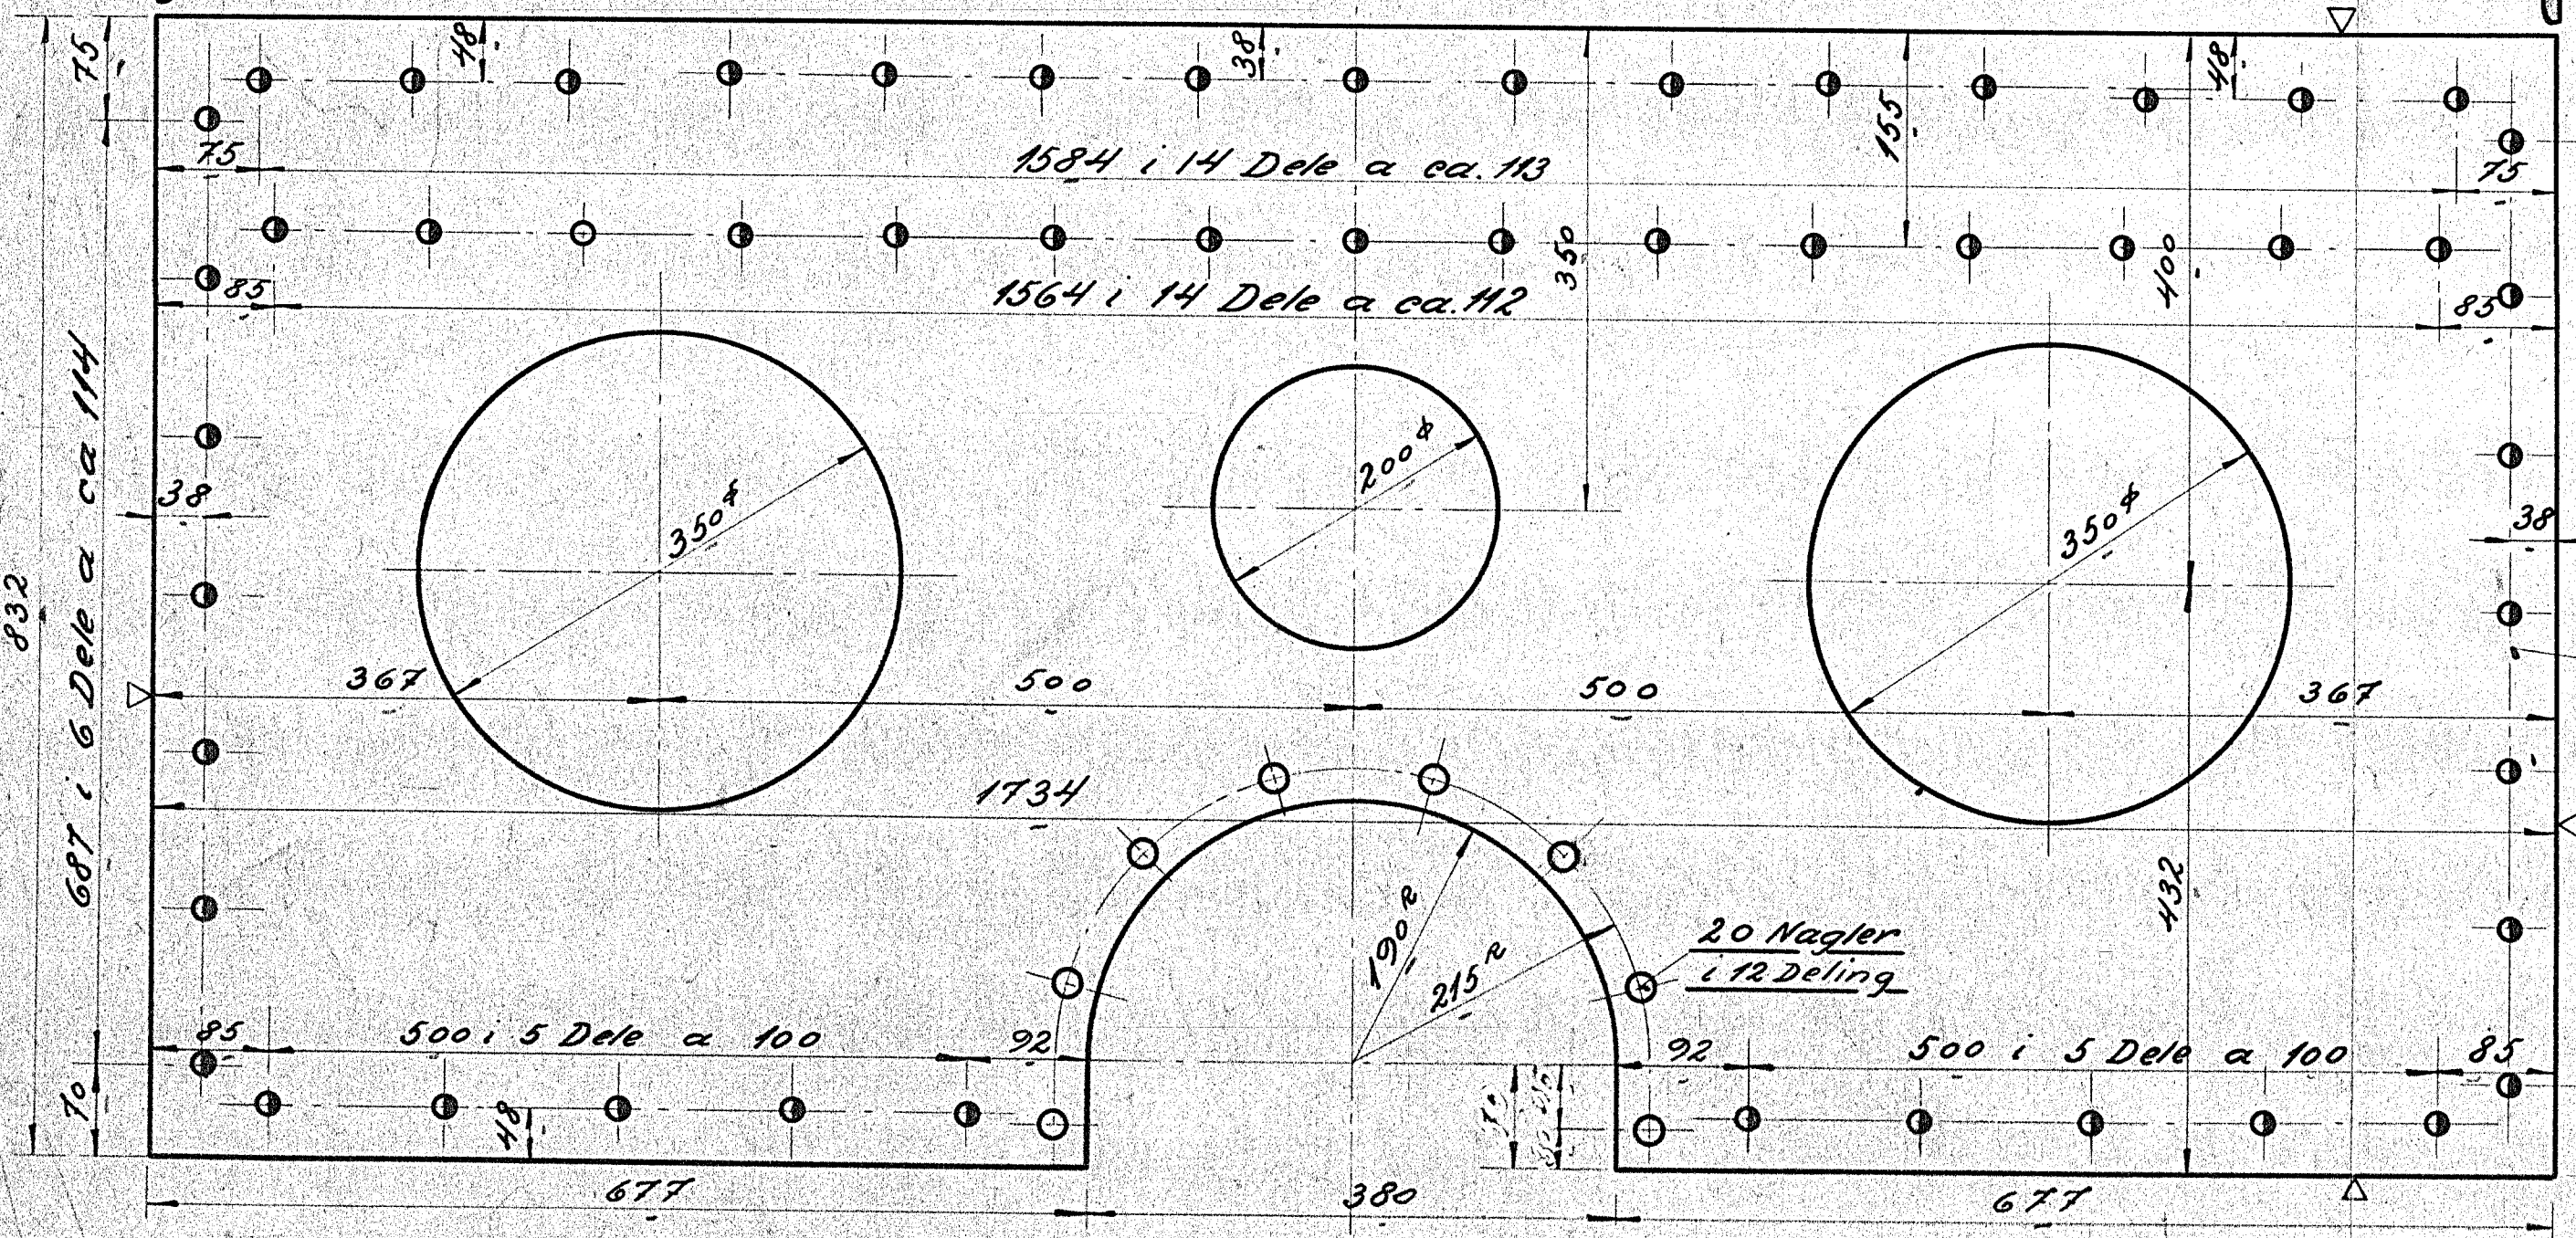 75
48
38
48
75
1584 i 14 Dele a ca. 113
155
75
85
1564 i 14 Dele a ca. 112
350
400
85
832
687 i 6 Dele a ca 114
38
350 ϕ
200 ϕ
350 ϕ
38
367
500
500
367
1734
432
190 R
215 R
20 Nagler
i 12 Deling
85
500 i 5 Dele a 100
92
92
500 i 5 Dele a 100
85
70
48
70
677
380
677